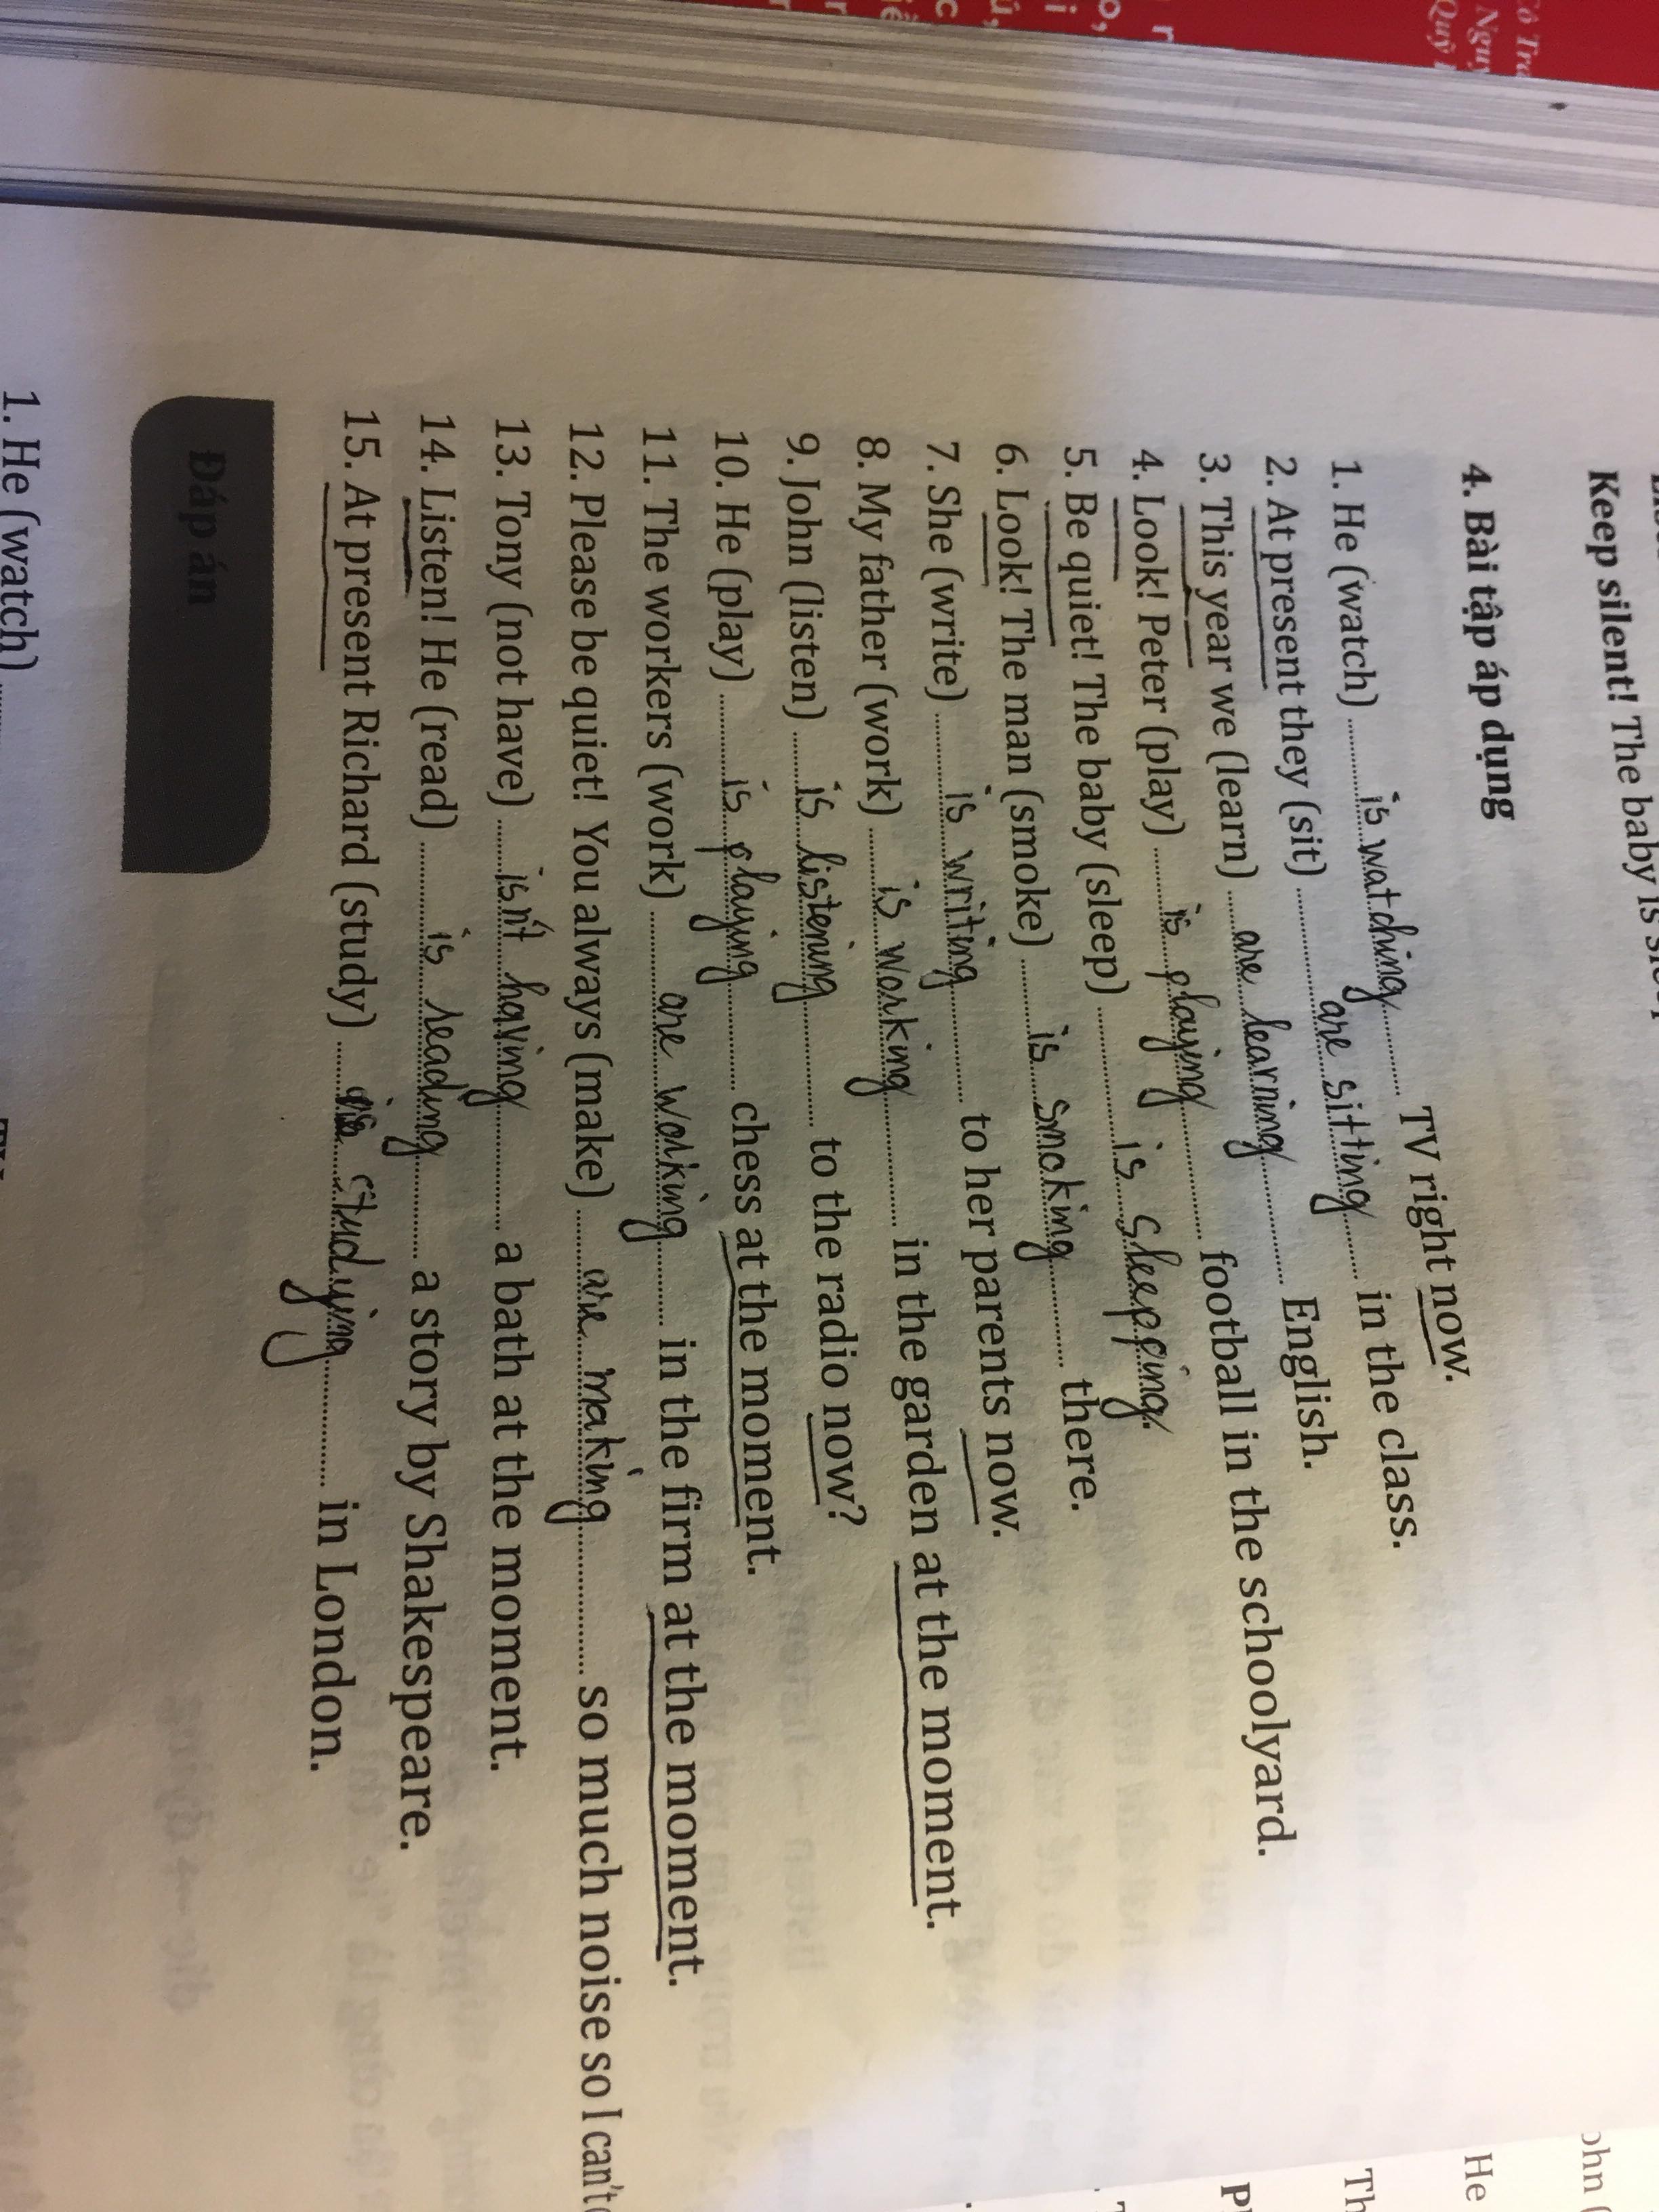 Keep silent! The baby is
4. Bài tập áp dụng
1. He (watch) ........ is watching ........ TV right now.
2. At present they (sit) ........ are sitting ........ in the class.
3. This year we (learn) ........ are learning ........ English.
4. Look! Peter (play) ........ is playing ........ football in the schoolyard.
5. Be quiet! The baby (sleep) ........ is sleeping.
6. Look! The man (smoke) ........ is smoking ........ there.
7. She (write) ........ is writing ........ to her parents now.
8. My father (work) ........ is working ........ in the garden at the moment.
9. John (listen) ........ is listening ........ to the radio now?
10. He (play) ........ is playing ........ chess at the moment.
11. The workers (work) ........ are working ........ in the firm at the moment.
12. Please be quiet! You always (make) ........ are making ........ so much noise so I can't
13. Tony (not have) ........ isn't having ........ a bath at the moment.
14. Listen! He (read) ........ is reading ........ a story by Shakespeare.
15. At present Richard (study) ........ is studying ........ in London.
Đáp án
1. He (watch) ........
He